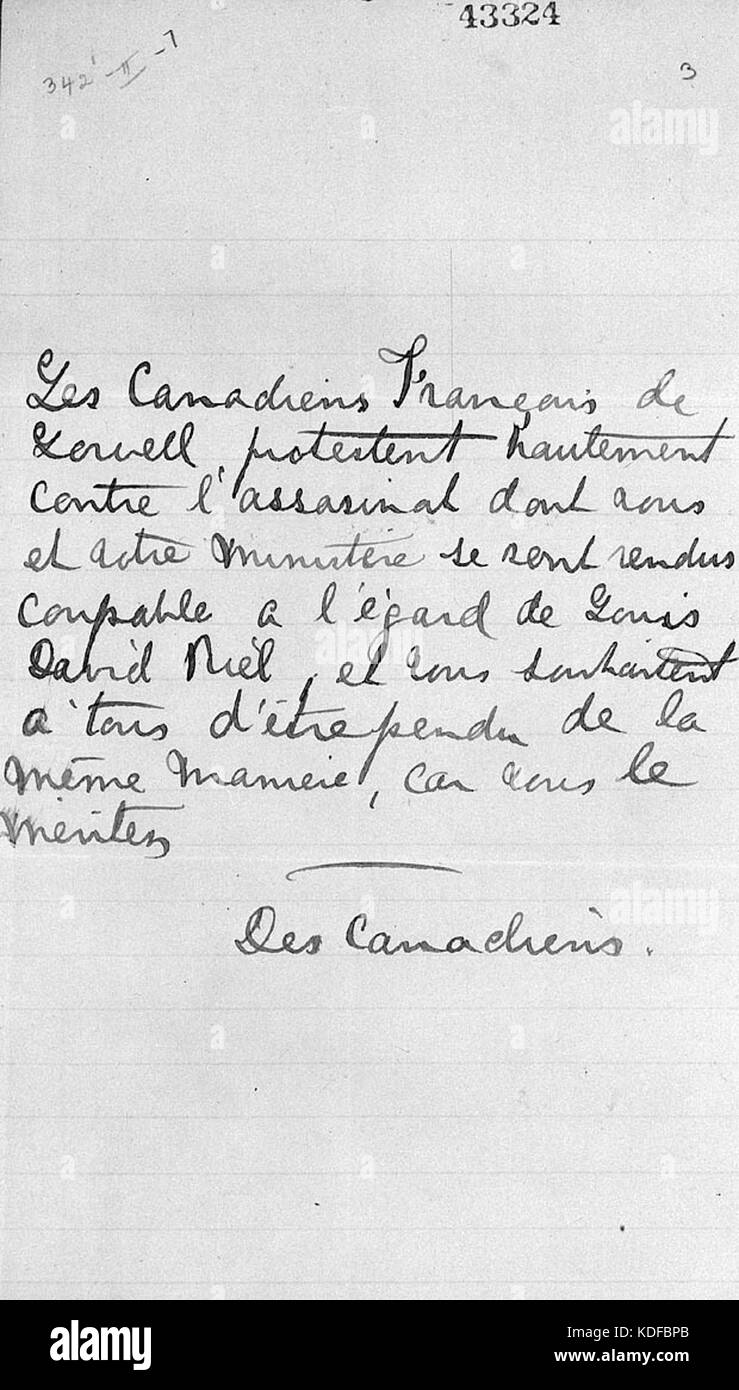 43324
342-II-7
3
Les Canadiens Français de
Lowell, protestent hautement
contre l'assasinat dont vous
et votre Ministère se sont rendus
coupable a l'égard de Louis
David Riël, et vous souhaitent
a tous d'être pendu de la
même maniere, car vous le
meritez
Des Canadiens.
alamy
Image ID: KDFBPB
www.alamy.com